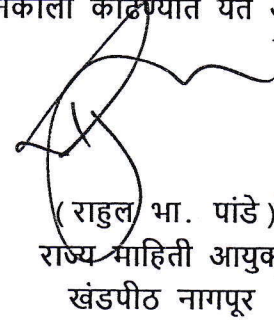 काढण्यात येत
( राहुल भा. पांडे )
राज्य माहिती आयुक
खंडपीठ नागपूर